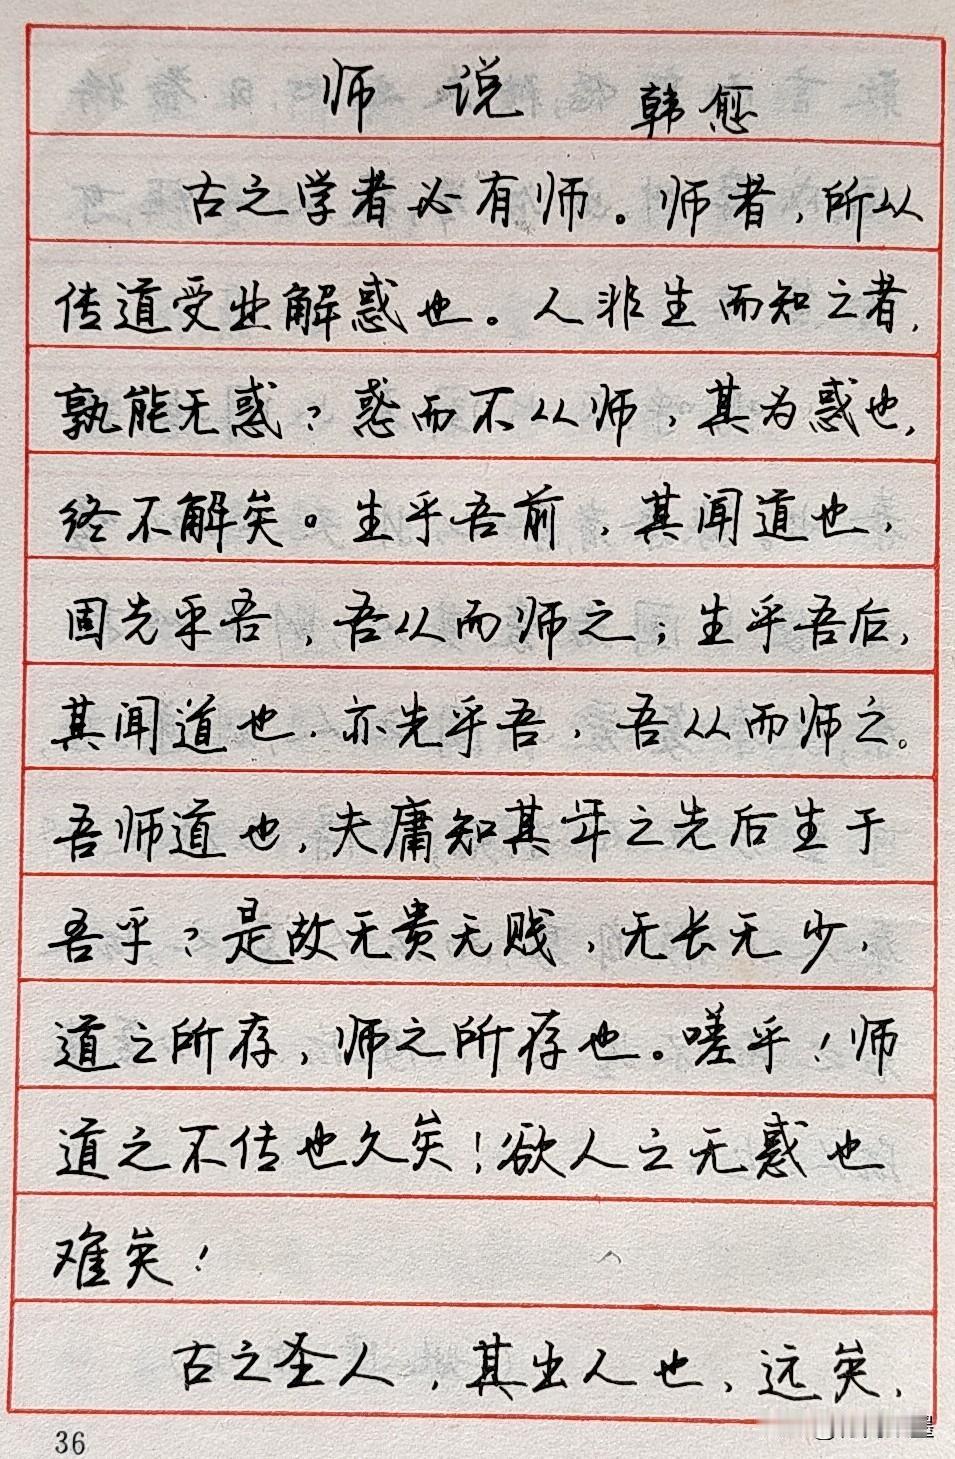 师说 韩愈
古之学者必有师。师者，所以
传道受业解惑也。人非生而知之者，
孰能无惑？惑而不从师，其为惑也，
终不解矣。生乎吾前，其闻道也，
固先乎吾，吾从而师之；生乎吾后，
其闻道也，亦先乎吾，吾从而师之。
吾师道也，夫庸知其年之先后生于
吾乎？是故无贵无贱，无长无少，
道之所存，师之所存也。嗟乎！师
道之不传也久矣！欲人之无惑也
难矣！
古之圣人，其出人也，远矣，
36